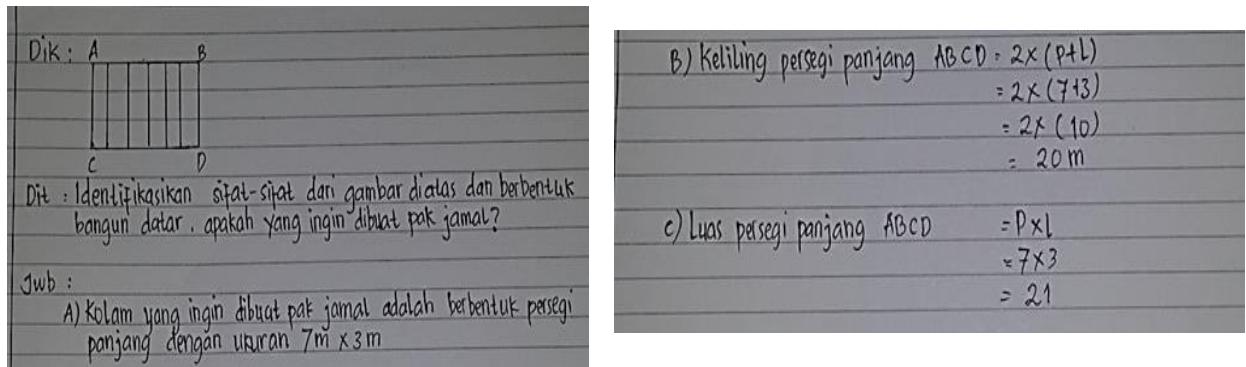 Dik : A B
C D
Dit : Identifikasikan sifat-sifat dari gambar diatas dan berbentuk
bangun datar. apakah yang ingin dibuat pak jamal?
Jwb :
A) Kolam yang ingin dibuat pak jamal adalah berbentuk persegi
panjang dengan ukuran 7m x 3m
B) Keliling persegi panjang ABCD = 2x (P+L)
= 2x (7+3)
= 2x (10)
= 20 m
c) Luas persegi panjang ABCD = P x L
= 7 x 3
= 21